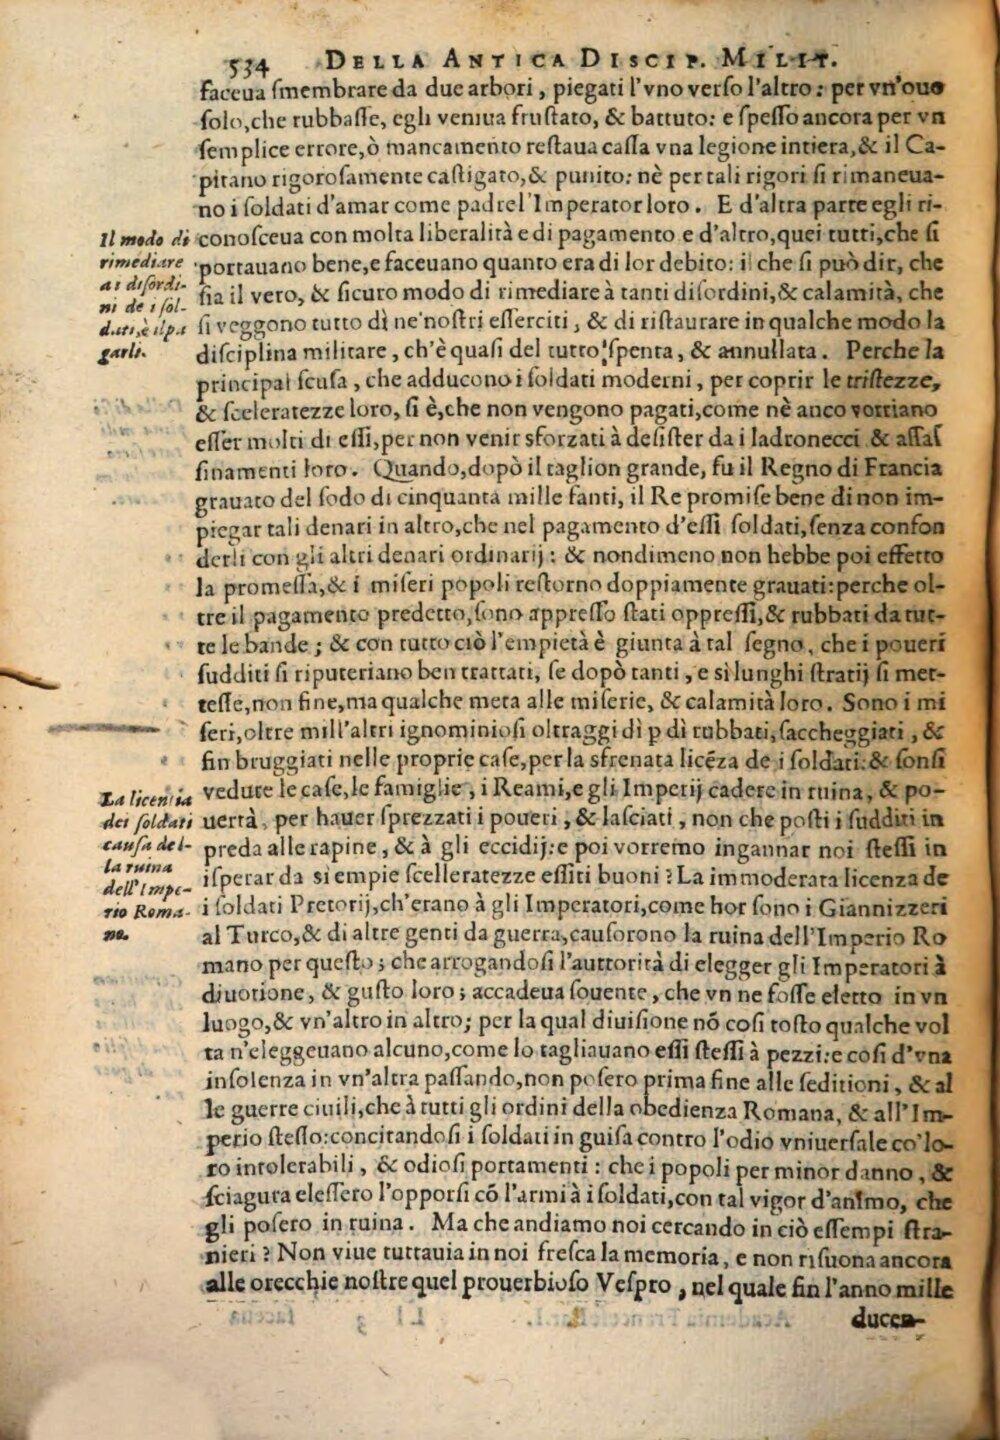 534 DELLA ANTICA DISCIP. MILIT.
faceua ſmembrare da due arbori, piegati l'vno verſo l'altro: per vn'ouo
ſolo, che rubbaſſe, egli veniua fruſtato, & battuto: e ſpeſſo ancora per vn
ſemplice errore, ò mancamento reſtaua caſſa vna legione intiera, & il Ca-
pitano rigoroſamente caſtigato, & punito: nè per tali rigori ſi rimaneua-
no i ſoldati d'amar come padre l'Imperator loro. E d'altra parte egli ri-
conoſceua con molta liberalità e di pagamento e d'altro, quei tutti, che ſi
portauano bene, e faceuano quanto era di lor debito: il che ſi può dir, che
ſia il vero, & ſicuro modo di rimediare à tanti diſordini, & calamità, che
ſi veggono tutto dì ne' noſtri eſſerciti, & di riſtaurare in qualche modo la
diſciplina militare, ch'è quaſi del tutto ſpenta, & annullata. Perche la
principal ſcuſa, che adducono i ſoldati moderni, per coprir le triſtezze,
& ſceleratezze loro, ſi è, che non vengono pagati, come nè anco vorriano
eſſer molti di eſſi, per non venir sforzati à deſiſter da i ladronecci & aſſaſ
ſinamenti loro. Quando, dopò il taglion grande, fu il Regno di Francia
grauato del ſodo di cinquanta mille fanti, il Re promiſe bene di non im-
piegar tali denari in altro, che nel pagamento d'eſſi ſoldati, ſenza confon
derli con gli altri denari ordinarij: & nondimeno non hebbe poi effetto
la promeſſa, & i miſeri popoli reſtorno doppiamente grauati: perche ol-
tre il pagamento predetto, ſono appreſſo ſtati oppreſſi, & rubbati da tut-
te le bande; & con tutto ciò l'empietà è giunta à tal ſegno, che i poueri
ſudditi ſi riputeriano ben trattati, ſe dopò tanti, e sì lunghi ſtratij ſi met-
teſſe, non fine, ma qualche meta alle miſerie, & calamità loro. Sono i mi
ſeri, oltre mill'altri ignominioſi oltraggi dì p dì rubbati, ſaccheggiati, &
fin bruggiati nelle proprie caſe, per la sfrenata licẽza de i ſoldati: & ſonſi
vedute le caſe, le famiglie, i Reami, e gli Imperij cadere in ruina, & po-
uertà, per hauer ſprezzati i poueri, & laſciati, non che poſti i ſudditi in
preda alle rapine, & à gli eccidij: e poi vorremo ingannar noi ſteſſi in
iſperar da sì empie ſcelleratezze eſſiti buoni? La immoderata licenza de
i ſoldati Pretorij, ch'erano à gli Imperatori, come hor ſono i Giannizzeri
al Turco, & di altre genti da guerra, cauſorono la ruina dell'Imperio Ro
mano per queſto; che arrogandoſi l'auttorità di elegger gli Imperatori à
diuotione, & guſto loro; accadeua ſouente, che vn ne foſſe eletto in vn
luogo, & vn'altro in altro; per la qual diuiſione nõ coſi toſto qualche vol
ta n'eleggeuano alcuno, come lo tagliauano eſſi ſteſſi à pezzi: e coſi d'vna
inſolenza in vn'altra paſſando, non poſero prima fine alle ſeditioni, & al
le guerre ciuili, che à tutti gli ordini della obedienza Romana, & all'Im-
perio ſteſſo: concitandoſi i ſoldati in guiſa contro l'odio vniuerſale co' lo-
ro intolerabili, & odioſi portamenti: che i popoli per minor danno, &
ſciagura eleſſero l'opporſi cõ l'armi à i ſoldati, con tal vigor d'animo, che
gli poſero in ruina. Ma che andiamo noi cercando in ciò eſſempi ſtra-
nieri? Non viue tuttauia in noi freſca la memoria, e non riſuona ancora
alle orecchie noſtre quel prouerbioſo Veſpro, nel quale fin l'anno mille
ducen-
Il modo di
rimediare
a i diſordi-
ni de i ſol-
dati, è il pa
garli.
La licentia
dei ſoldati
cauſa del-
la ruina
dell'Impe-
rio Roma-
no.